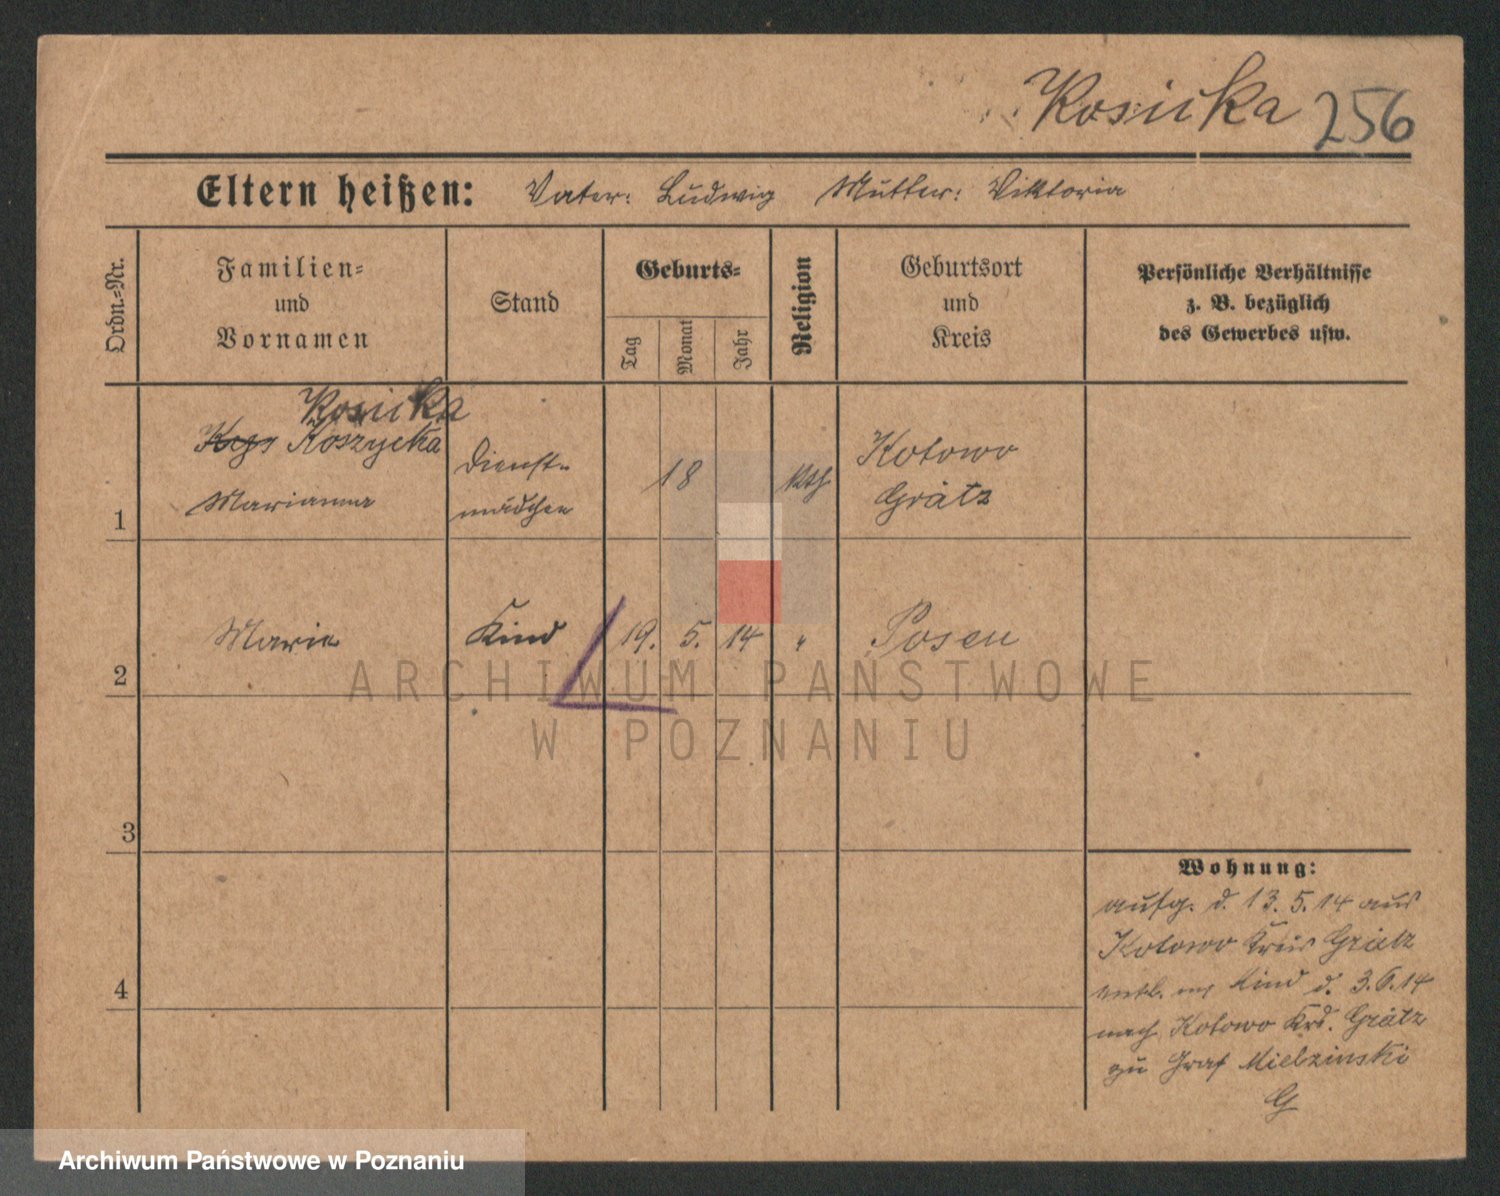 Kosicka 256
Eltern heißen: Vater: Ludwig Mutter: Viktoria
Ordn=Nr.
Familien=
und
Vornamen
Stand
Geburts=
Tag
Monat
Jahr
Religion
Geburtsort
und
Kreis
Persönliche Verhältnisse
z. B. bezüglich
des Gewerbes usw.
Kosicka
Koszycka
Marianna
Dienst-
mädchen
18
kth
Kotowo
Grätz
1
Marie
Kind
19. 5. 14 "
Posen
2
3
4
Wohnung:
aufg. d. 13. 5. 14 aus
Kotowo Kreis Grätz
entl. m Kind d. 3. 6. 14
nach Kotowo Krs. Grätz
zu Graf Mielzinski
G
ARCHIWUM PAŃSTWOWE
W POZNANIU
Archiwum Państwowe w Poznaniu